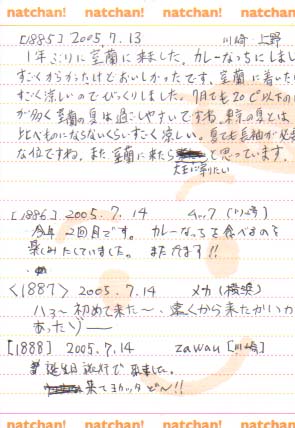 natchan! natchan! natchan! natchan!
[1885] 2005.7.13 川崎・上野
1年ぶりに室蘭に来ました。カレーなっちにしまし
すごくからかったけどおいしかったです。室蘭に着いたら
すごく涼しいのでびっくりしました。7月でも20℃以下の
が多く室蘭の夏は過ごしやすいですね。東京の夏とは
比べものにならないくらいすごく涼しい。夏でも長袖が必要
な位ですね。また室蘭に来たら と思っています。
[1886] 2005.7.14
今年2回目です。カレーなっちを食べるのを
楽しみにしていました。また来ます!!
<1887> 2005.7.14 メカ(横浜)
ハラ〜 初めて来た〜、遠くから来たかいが
あったゾ——
[1888] 2005.7.14 zawau [川崎]
誕生日旅行で来ました。
来てヨカッタどん!!
natchan! natchan! natchan! natchan!